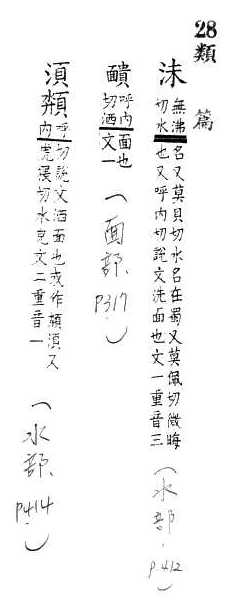 28類 篇
沬
無沸名又莫貝切水名在蜀又莫佩切微晦
切水也又呼内切說文洗面也文一重音三
(水部.P.412)
靧
呼内面也
切洒文一
(面部.P317)
湏頮
呼切說文洒面也或作頮湏又
内虎猥切水皃文二重音一
(水部.P414)